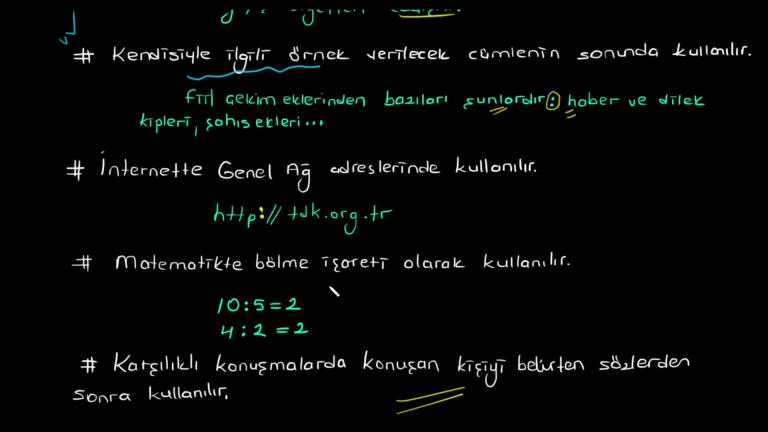 # Kendisiyle ilgili örnek verilecek cümlenin sonunda kullanılır.
Fiil çekim eklerinden bazıları şunlardır: haber ve dilek
kipleri, şahıs ekleri...
# İnternette Genel Ağ adreslerinde kullanılır.
http://tdk.org.tr
# Matematikte bölme işareti olarak kullanılır.
10:5=2
4:2=2
# Karşılıklı konuşmalarda konuşan kişiyi belirten sözlerden
sonra kullanılır.